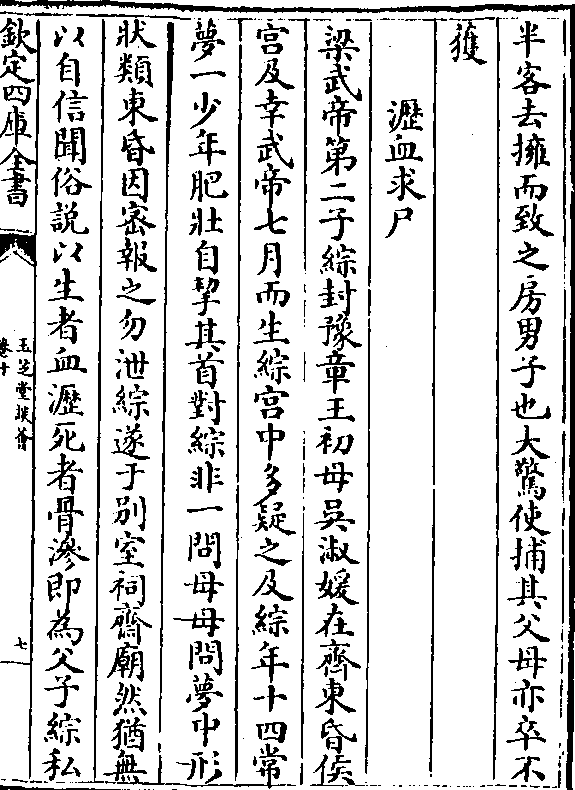 半客去擁而致之房男子也大驚使捕其父母亦卒不
獲
瀝血求尸
梁武帝第二子綜封豫章王初母吳淑媛在齊東昏侯
宫及幸武帝七月而生綜宫中多疑之及綜年十四常
夢一少年肥壯自挈其首對綜非一問母母問夢中形
狀類東昏因密報之勿泄綜遂于别室祠齊廟然猶無
以自信聞俗説以生者血瀝死者骨滲即為父子綜私
欽定四庫全書
玉芝堂談薈
卷十
七